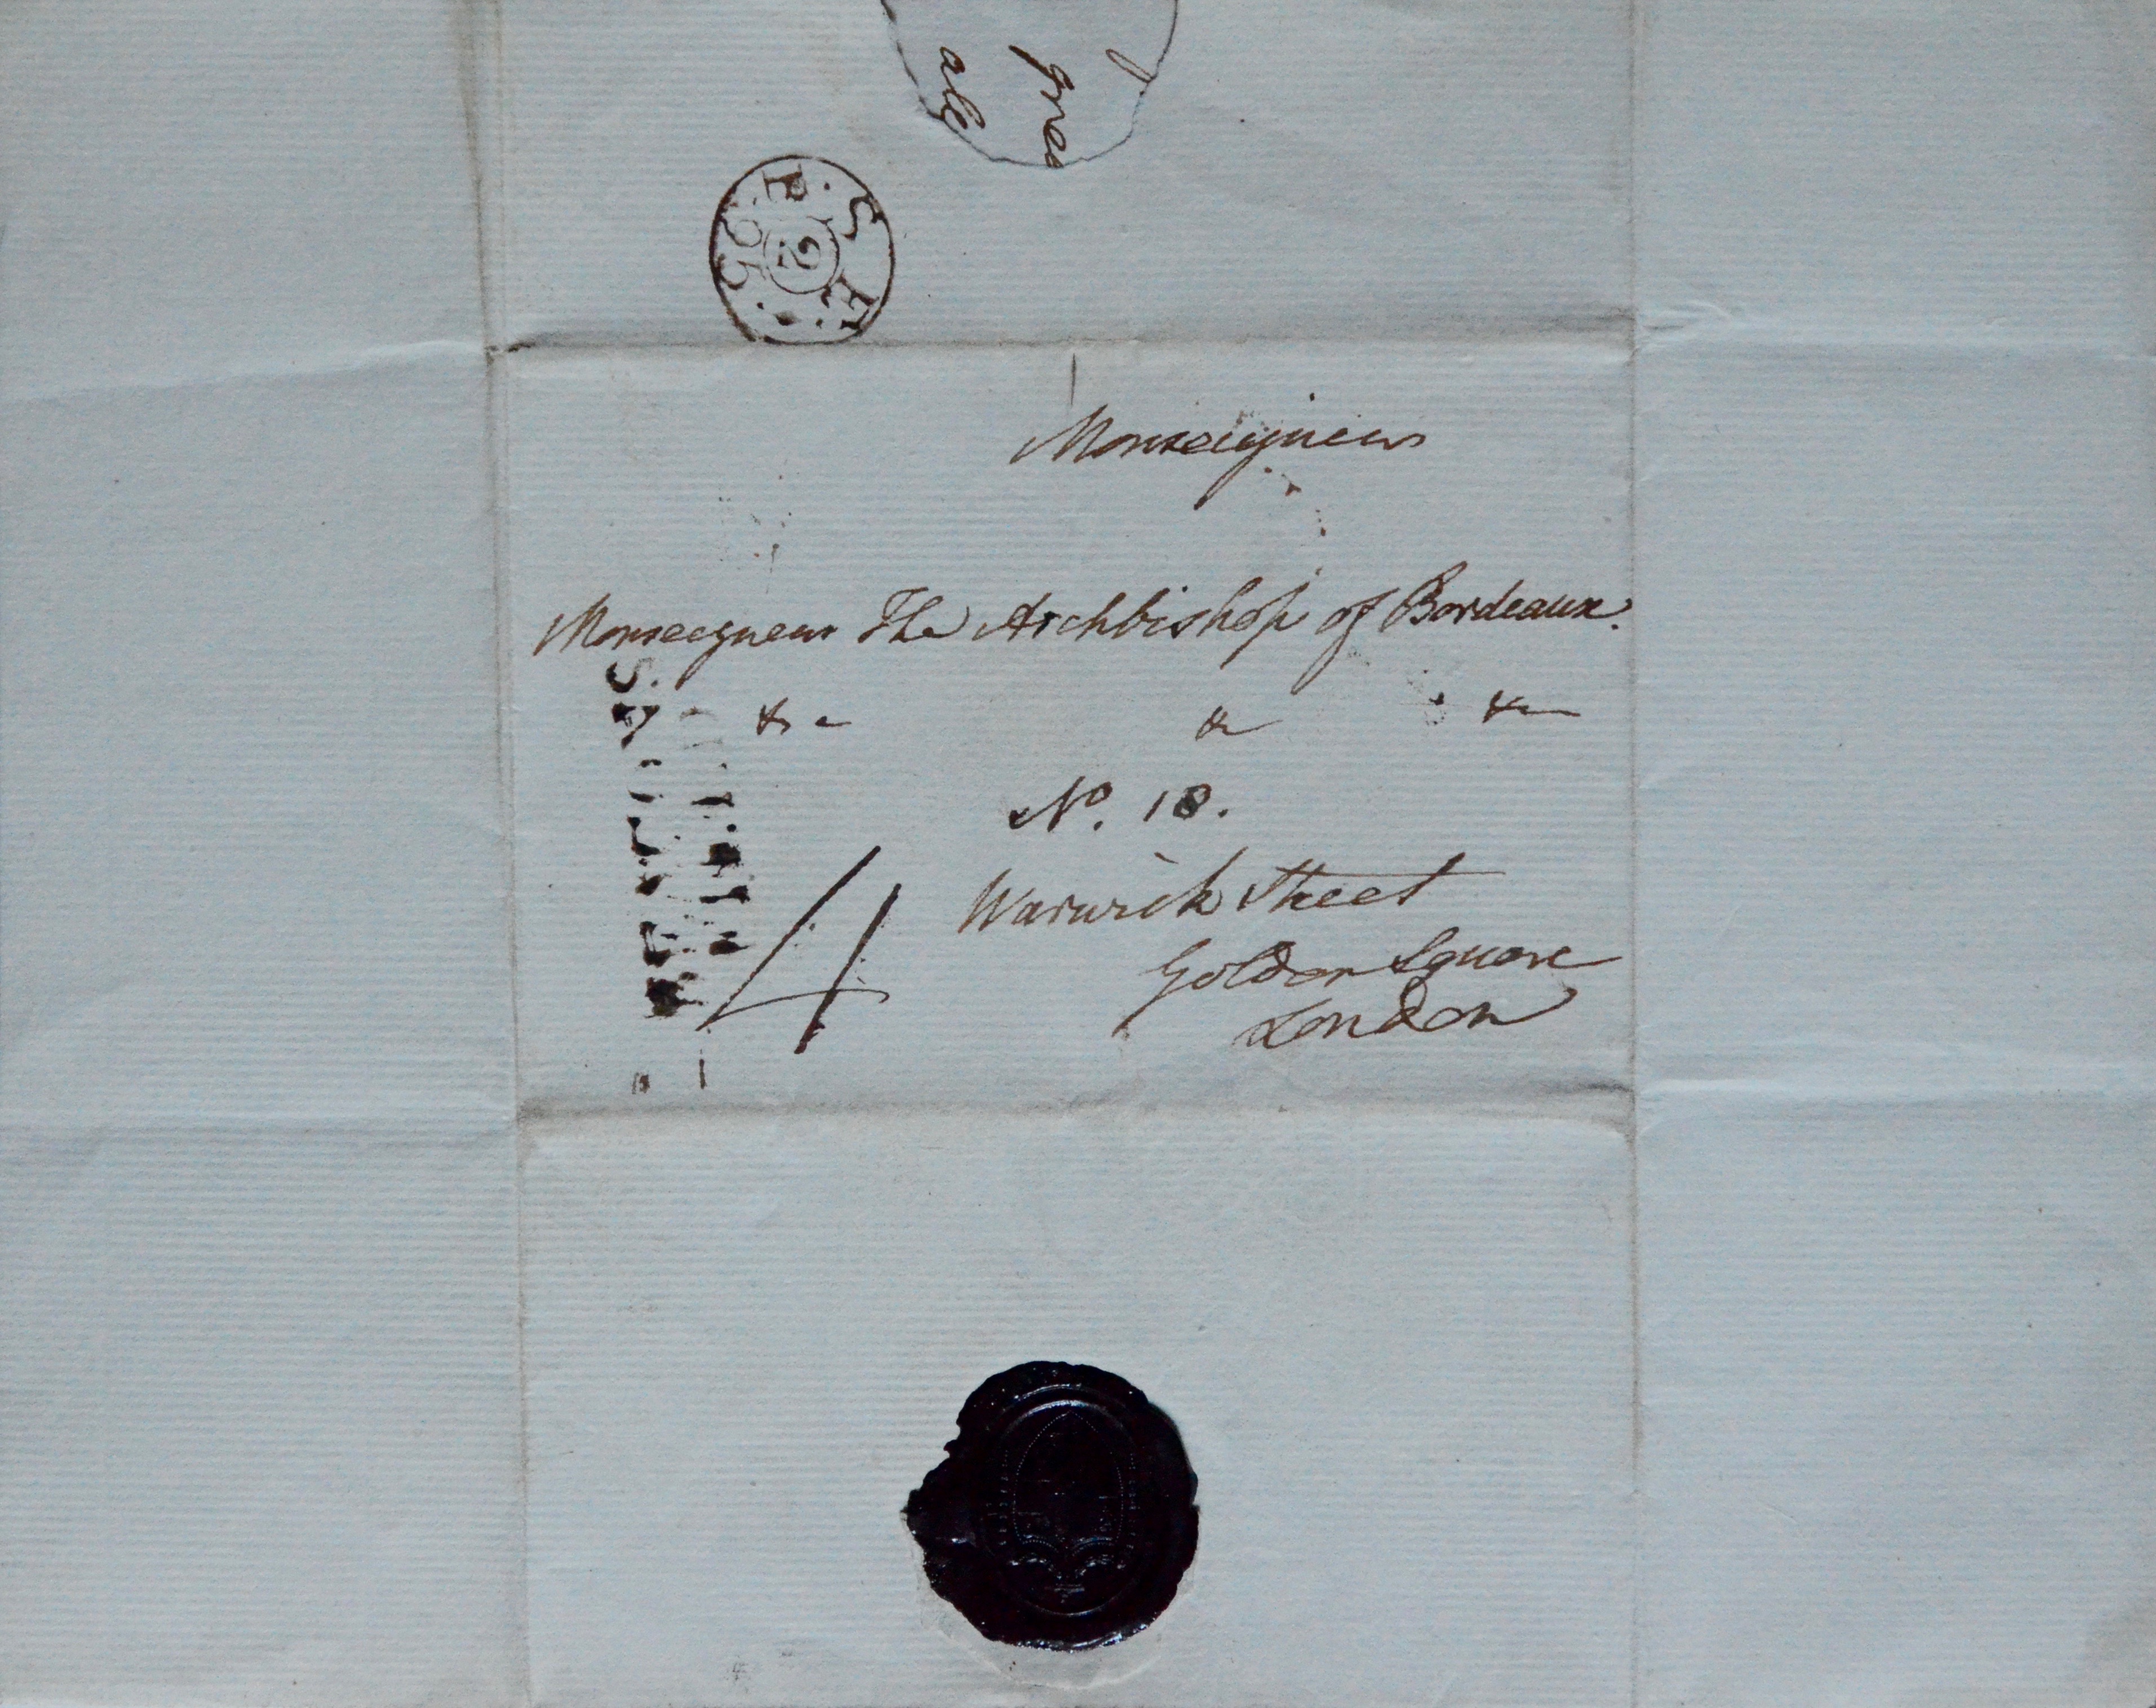 gree
able
SEP
2
95
Monseigneur
Monseigneur The Archbishop of Bordeaux.
&c &c &c
No. 18.
Warwick Street
Golden Square
London
4